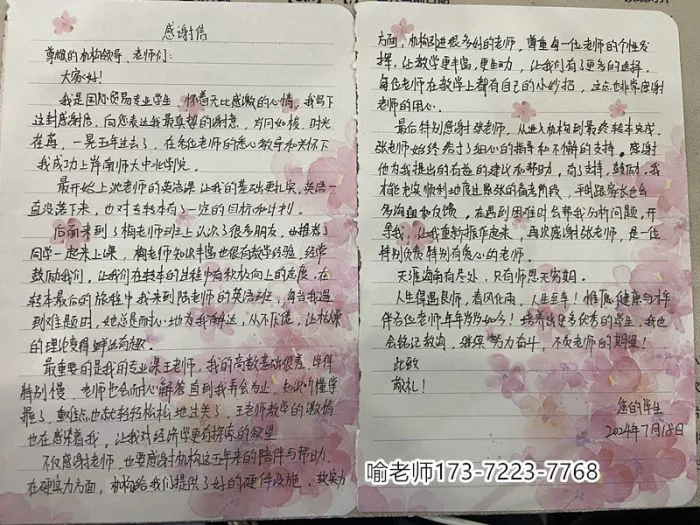 感谢信
尊敬的机构领导、老师们：
大家好！
我是国际贸易专业学生，怀着无比感激的心情，我写下
这封感谢信，向您表达我最真挚的谢意，岁月如梭，时光
在苒，一晃五年过去了，在各位老师的悉心教导和关怀下
我成功上岸南师大中北学院。
最开始上沈老师的英语课让我的基础更扎实，英语一
直没落下来，也对专转本有了一定的目标和计划。
后面来到了梅老师班上认识了很多朋友，也推荐了
同学一起来上课，梅老师知识丰富也很有教学经验，经常
鼓励我们，让我们在转本的过程中有积极向上的态度。在
转本最后的旅程中我来到陆老师的英语班，每当我遇
到难题时，她总是耐心地为我解答，从不厌倦，让枯燥
的理论变得鲜活有趣。
最重要的是我的专业课王老师，我的高数基础很差，学得
特别慢，老师也会耐心解答直到我弄会为止，知识听懂学
靠了，重难点也就轻轻松松地过关了，王老师教学的激情
也在感染着我，让我对经济学更有探索的欲望
不仅感谢老师，也要感谢机构这五年来的陪伴与帮助。
在硬实力方面，机构给我们提供了好的硬件设施，软实力
方面，机构引进很多好的老师，尊重每一位老师的个性发
挥，让教学更丰富，更生动，让我们有了更多的选择。
每位老师在教学上都有自己的小妙招，这点也非常感谢
老师的用心。
最后特别感谢张老师，从进入机构到最终转本完成，
张老师始终给予了细心的指导和不懈的支持。感谢
他为我提出的有益的建议和帮助，有了支持，鼓励，我
才能更加顺利地度过紧张的备考阶段，平时跟家长也会
多沟通和反馈，在遇到困难时会帮我分析问题，开
导我，让我重新振作起来，再次感谢张老师，是一位
特别负责特别有爱心的老师。
天涯海角有尽处，只有师恩无穷期。
人生得遇良师，春风化雨，人生至幸！惟愿健康与才华
伴各位老师年年岁岁如今！培养出更多优秀的学生，我也
会铭记教诲，继续努力奋斗，不负老师的期望！
此致
敬礼！
您的学生
2024年7月18日
喻老师173-7223-7768